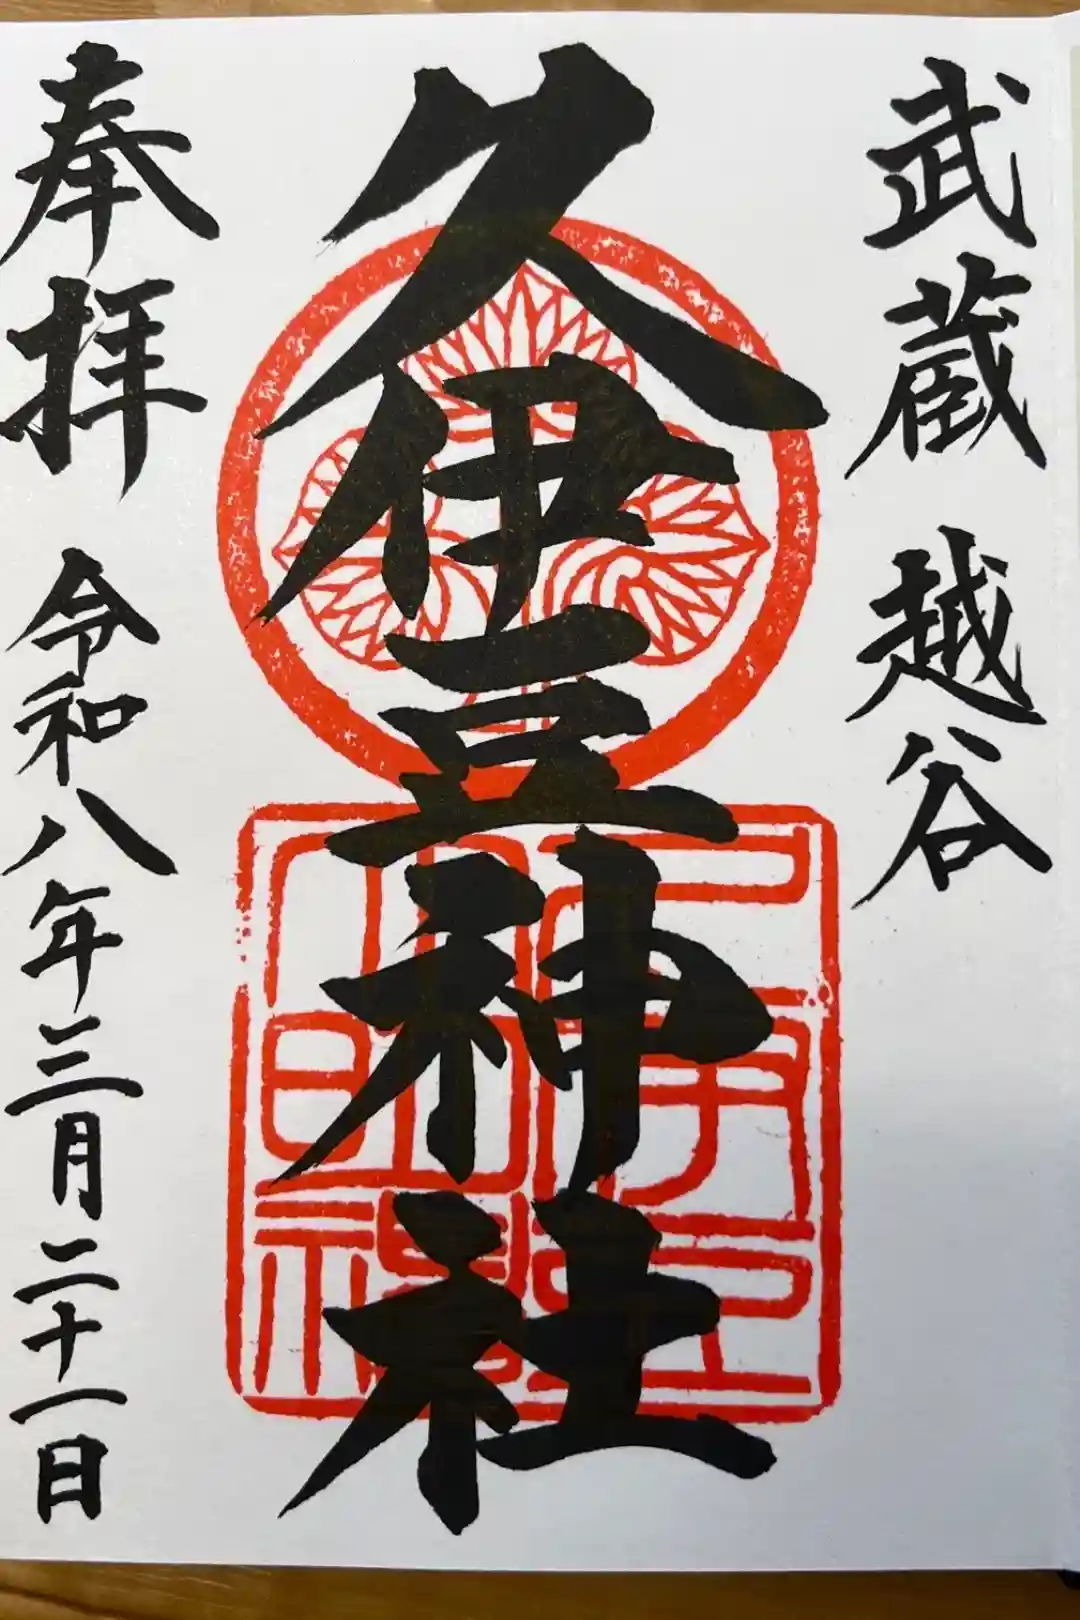 武蔵 越谷
久伊豆神社
奉拝 令和八年三月二十一日